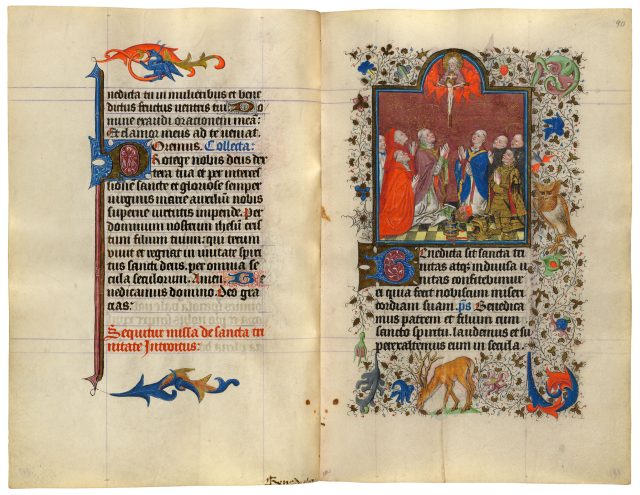 nedicta tu in mulieribus et bene
dictus fructus ventris tui. Do
mine exaudi orationem meā:
Et clamor meus ad te veniat.
Oremus. Collecta:
Protegr nobis deus dex
tera tua et per interes
sione sancte et gloriose semper
virginis marie auxiliū nobis
superne virtutis impende. Per
dominum nostrum ihesū cri
stum filium tuum: qui tecum
vivit et regnat in unitate spiri
tus sancti deus. per omnia se
cula seculorum. Amen. Be
nedicamus domino. Deo gra
cias:
Sequitur missa de sancta tri
nitate Introitus:
90
Benedicta sit sancta tri
nitas atqz indivisa u
nitas confitebimur
ei quia fecit nobiscum miseri
cordiam suam. ps Benedica
mus patrem et filium cum
sancto spiritu. laudemus et su
perexaltemus eum in secula.
Benedicta